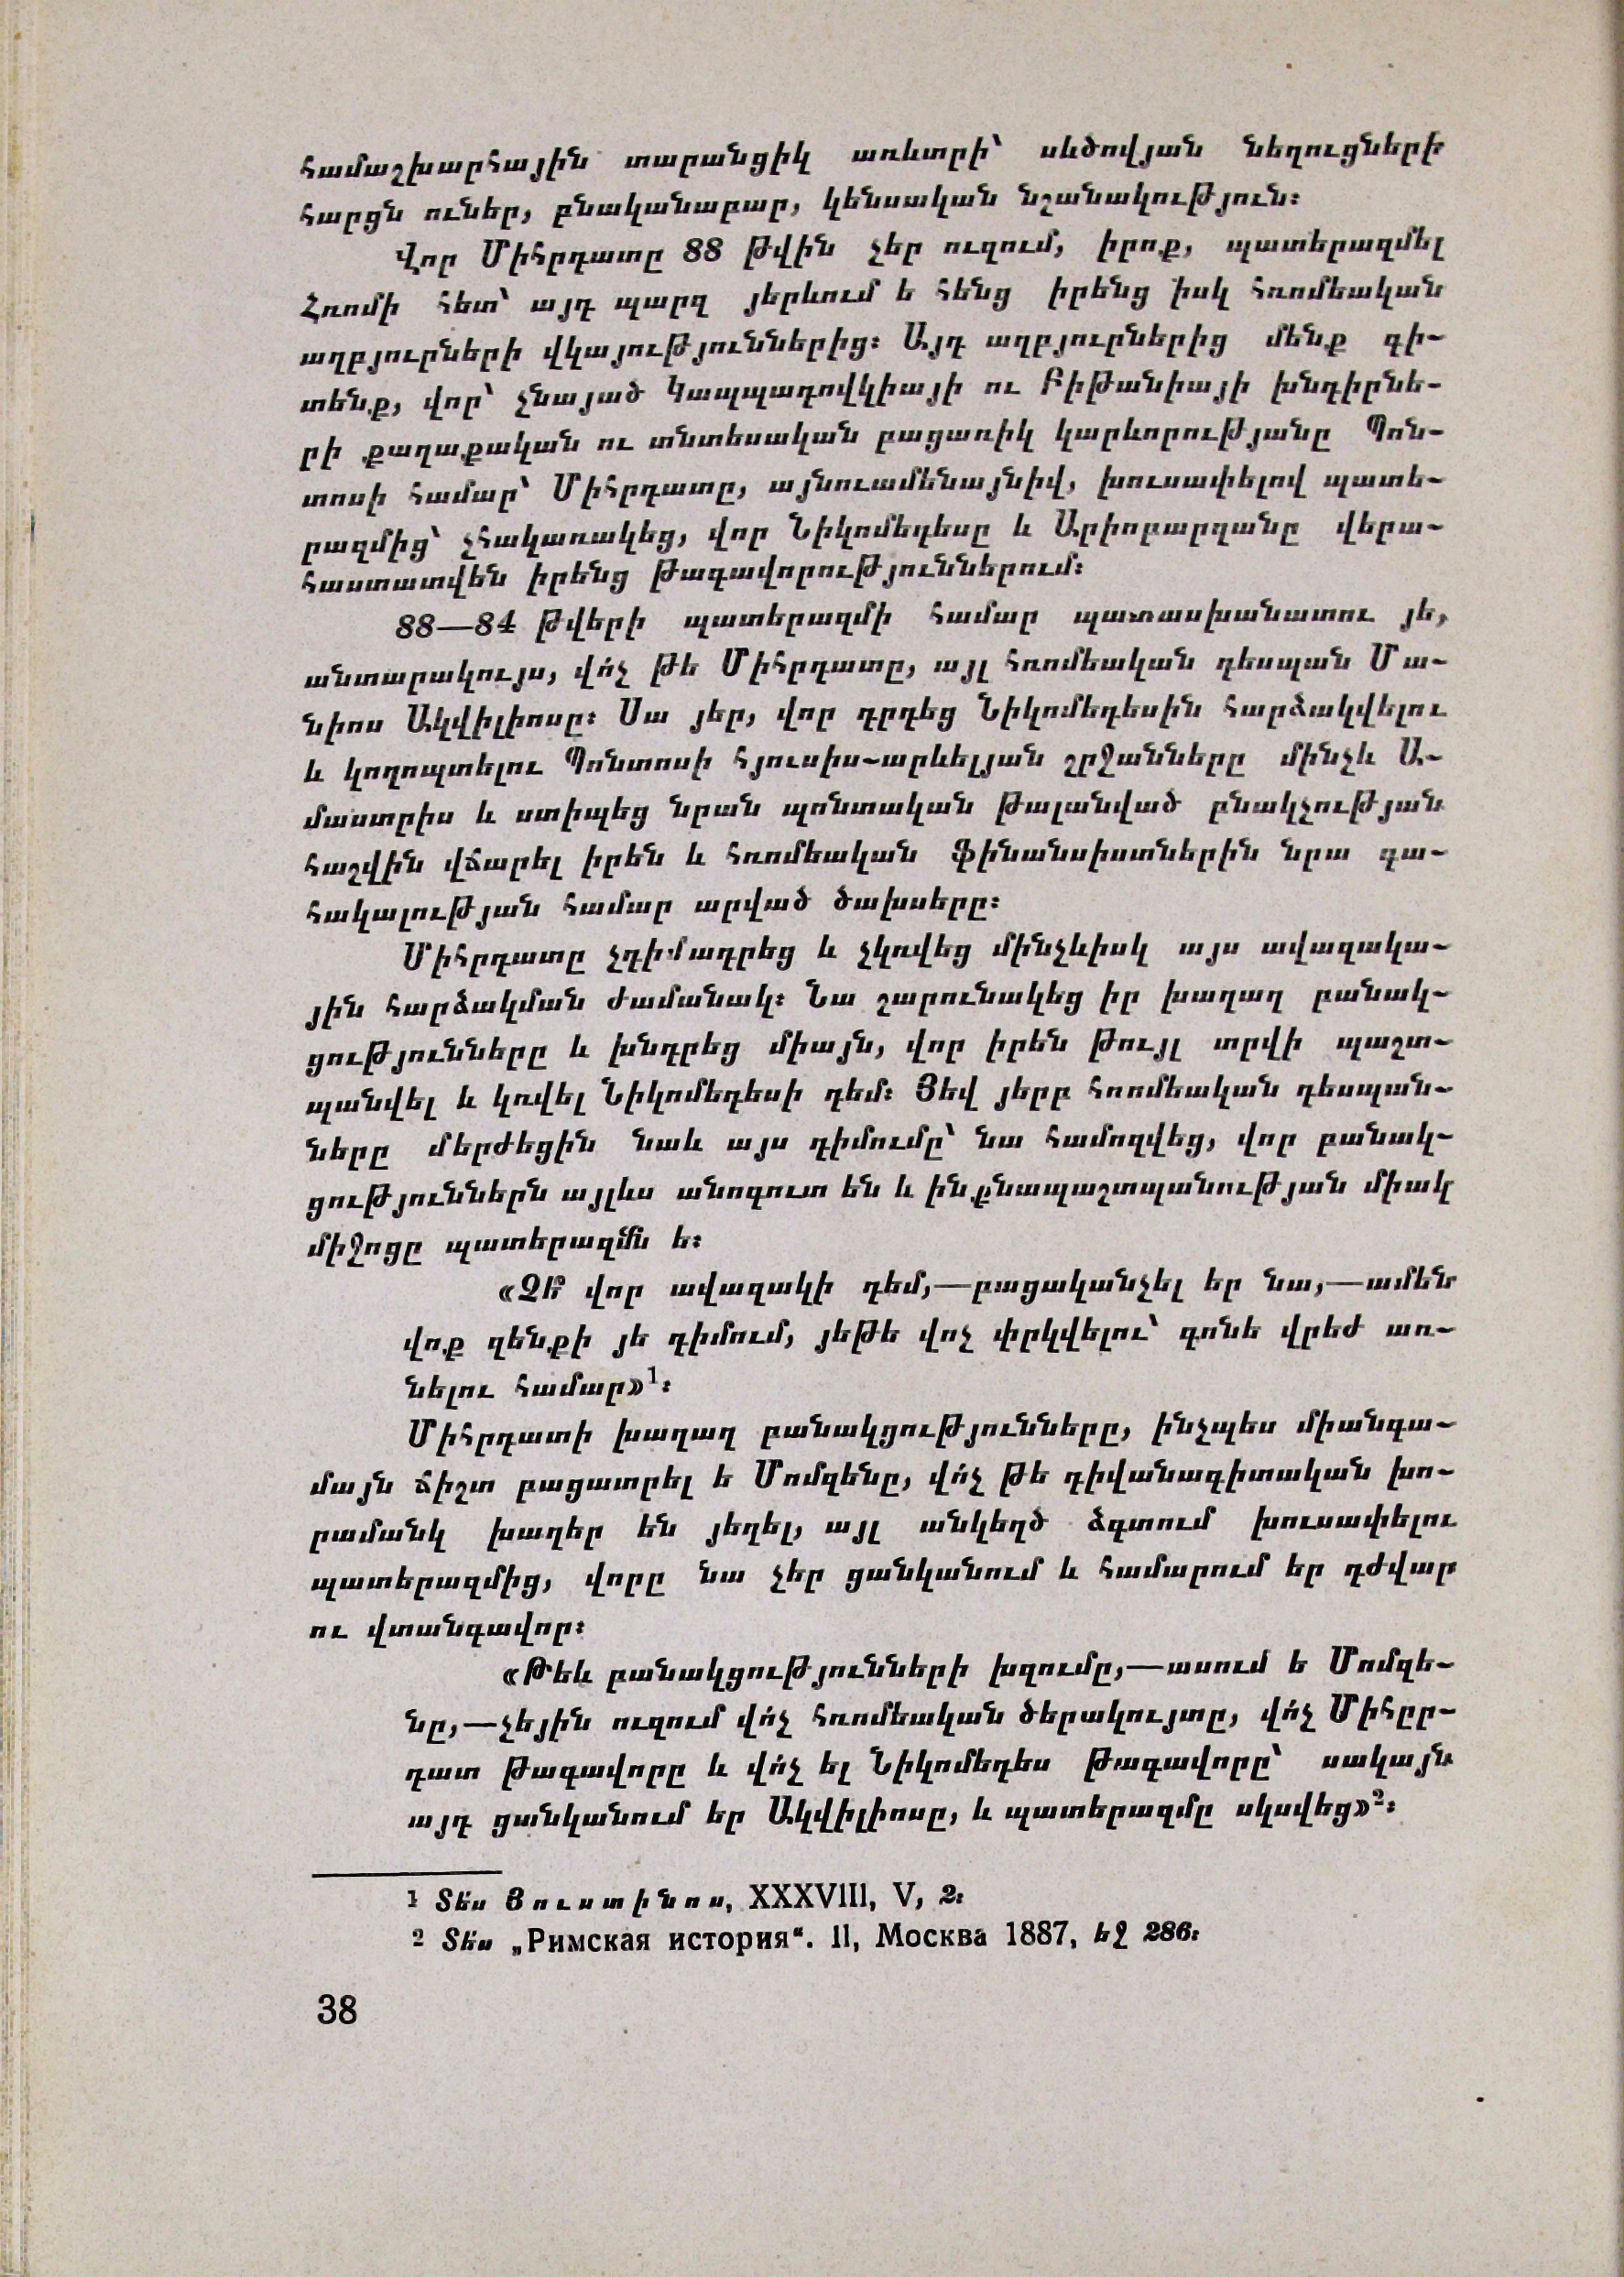 համաշխարհային տարանցիկ առևտրի՝ սևծովյան նեղուցների
հարցն ուներ, բնականաբար, կենսական նշանակություն։
Վոր Միհրդատը 88 թվին չեր ուզում, իրոք, պատերազմել
Հռոմի հետ՝ այդ պարզ յերևում ե հենց իրենց իսկ հռոմեական
աղբյուրների վկայություններից։ Այդ աղբյուրներից մենք գի-
տենք, վոր՝ չնայած Կապպադովկիայի ու Բիթանիայի խնդիրնե-
րի քաղաքական ու տնտեսական բացառիկ կարևորությանը Պոն-
տոսի համար՝ Միհրդատը, այնուամենայնիվ, խուսափելով պատե-
րազմից՝ չհակառակեց, վոր Նիկոմեդեսը և Արիոբարզանը վերա-
հաստատվեն իրենց թագավորություններում։
88—84 թվերի պատերազմի համար պատասխանատու յե,
անտարակույս, վո՛չ թե Միհրդատը, այլ հռոմեական դեսպան Մա-
նիոս Ակվիլիոսը։ Սա յեր, վոր դրդեց Նիկոմեդեսին հարձակվելու
և կողոպտելու Պոնտոսի հյուսիս-արևելյան շրջանները մինչև Ա-
մաստրիս և ստիպեց նրան պոնտական թալանված բնակչության
հաշվին վճարել իրեն և հռոմեական ֆինանսիստներին նրա գա-
հակալության համար արված ծախսերը։
Միհրդատը չդիմադրեց և չկռվեց մինչևիսկ այս ավազակա-
յին հարձակման ժամանակ։ Նա շարունակեց իր խաղաղ բանակ-
ցությունները և խնդրեց միայն, վոր իրեն թույլ տրվի պաշտ-
պանվել և կռվել Նիկոմեդեսի դեմ։ Յեվ յերբ հռոմեական դեսպան-
ները մերժեցին նաև այս դիմումը՝ նա համոզվեց, վոր բանակ-
ցություններն այլևս անոգուտ են և ինքնապաշտպանության միակ
միջոցը պատերազմն ե։
«Չե՞ վոր ավազակի դեմ,—բացականչել եր նա,—ամեն
վոք զենքի յե դիմում, յեթե վոչ փրկվելու՝ գոնե վրեժ առ-
նելու համար»¹։
Միհրդատի խաղաղ բանակցությունները, ինչպես միանգա-
մայն ճիշտ բացատրել ե Մոմզենը, վո՛չ թե դիվանագիտական խո-
րամանկ խաղեր են յեղել, այլ անկեղծ ձգտում խուսափելու
պատերազմից, վորը նա չեր ցանկանում և համարում եր դժվար
ու վտանգավոր։
«Թեև բանակցությունների խզումը,—ասում ե Մոմզե-
նը,—չեյին ուզում վո՛չ հռոմեական ծերակույտը, վո՛չ Միհրր-
դատ թագավորը և վո՛չ ել Նիկոմեդես թագավորը՝ սակայն
այդ ցանկանում եր Ակվիլիոսը, և պատերազմը սկսվեց»²։
¹ Տե՛ս Յուստինոս, XXXVIII, V, 2։
² Տե՛ս „Римская история“. II, Москва 1887, եջ 286։
38